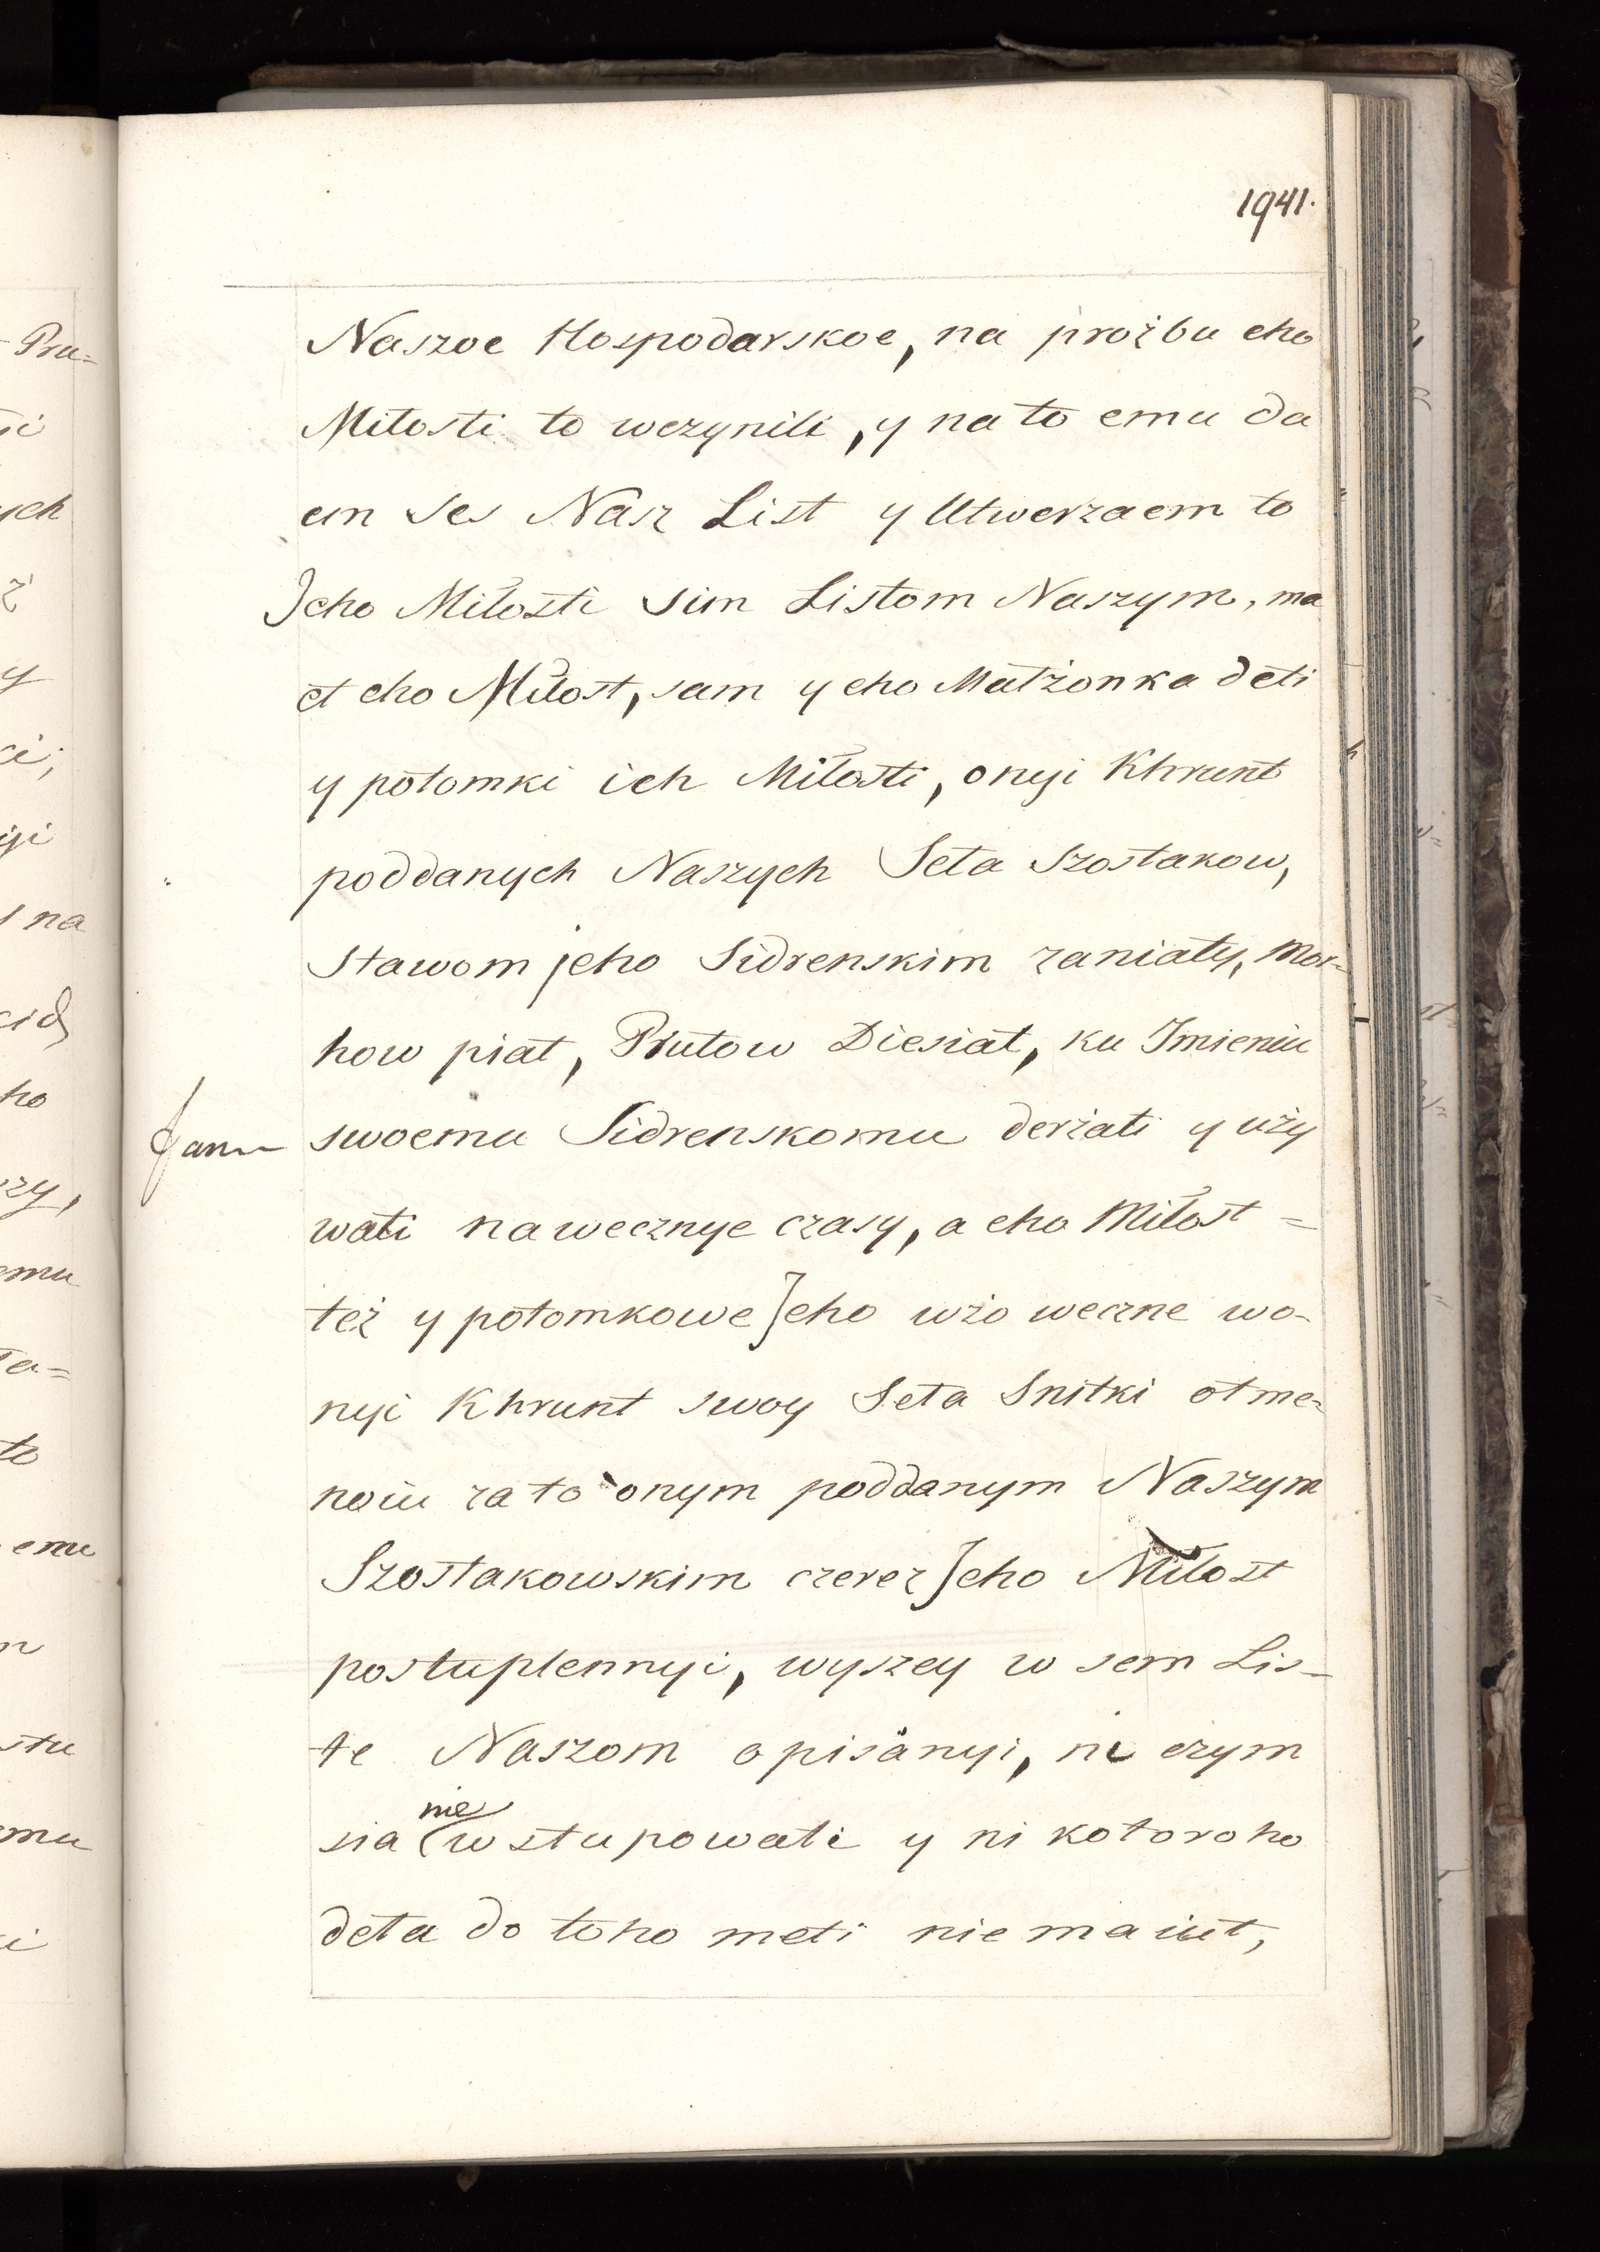 1941.
Naszoe Hospodarskoe, na proźbu eho
Miłosti to wczynili, y na to emu da
em Ses Nasz List y Utwerzaem to
Jeho Miłosti sim Listom Naszym, ma
et eho Miłost, sam y eho Małżonka deti
y potomki ich Miłosti, onyi Khrunt
poddanych Naszych Seła Szostakow,
Stawom jeho Sidrenskim zaniaty, Mor-
how piat, Prutow Diesiat, ku Imieniu
swoemu Sidrenskomu derżati y uży
wati na wecznye czasy, a eho Miłost =
też y potomkowe Jeho wżo weczne wo-
nyi Khrunt swoy Seła Snitki otme-
noiu za to onym poddanym Naszym
Szostakowskim czerez Jeho Miłost
postuplennyi, wyszey w sem Lis-
te Naszom opisanyi, ni czym
sia nie wstupowati y ni kotoroho
deła do toho meti nie maiut,